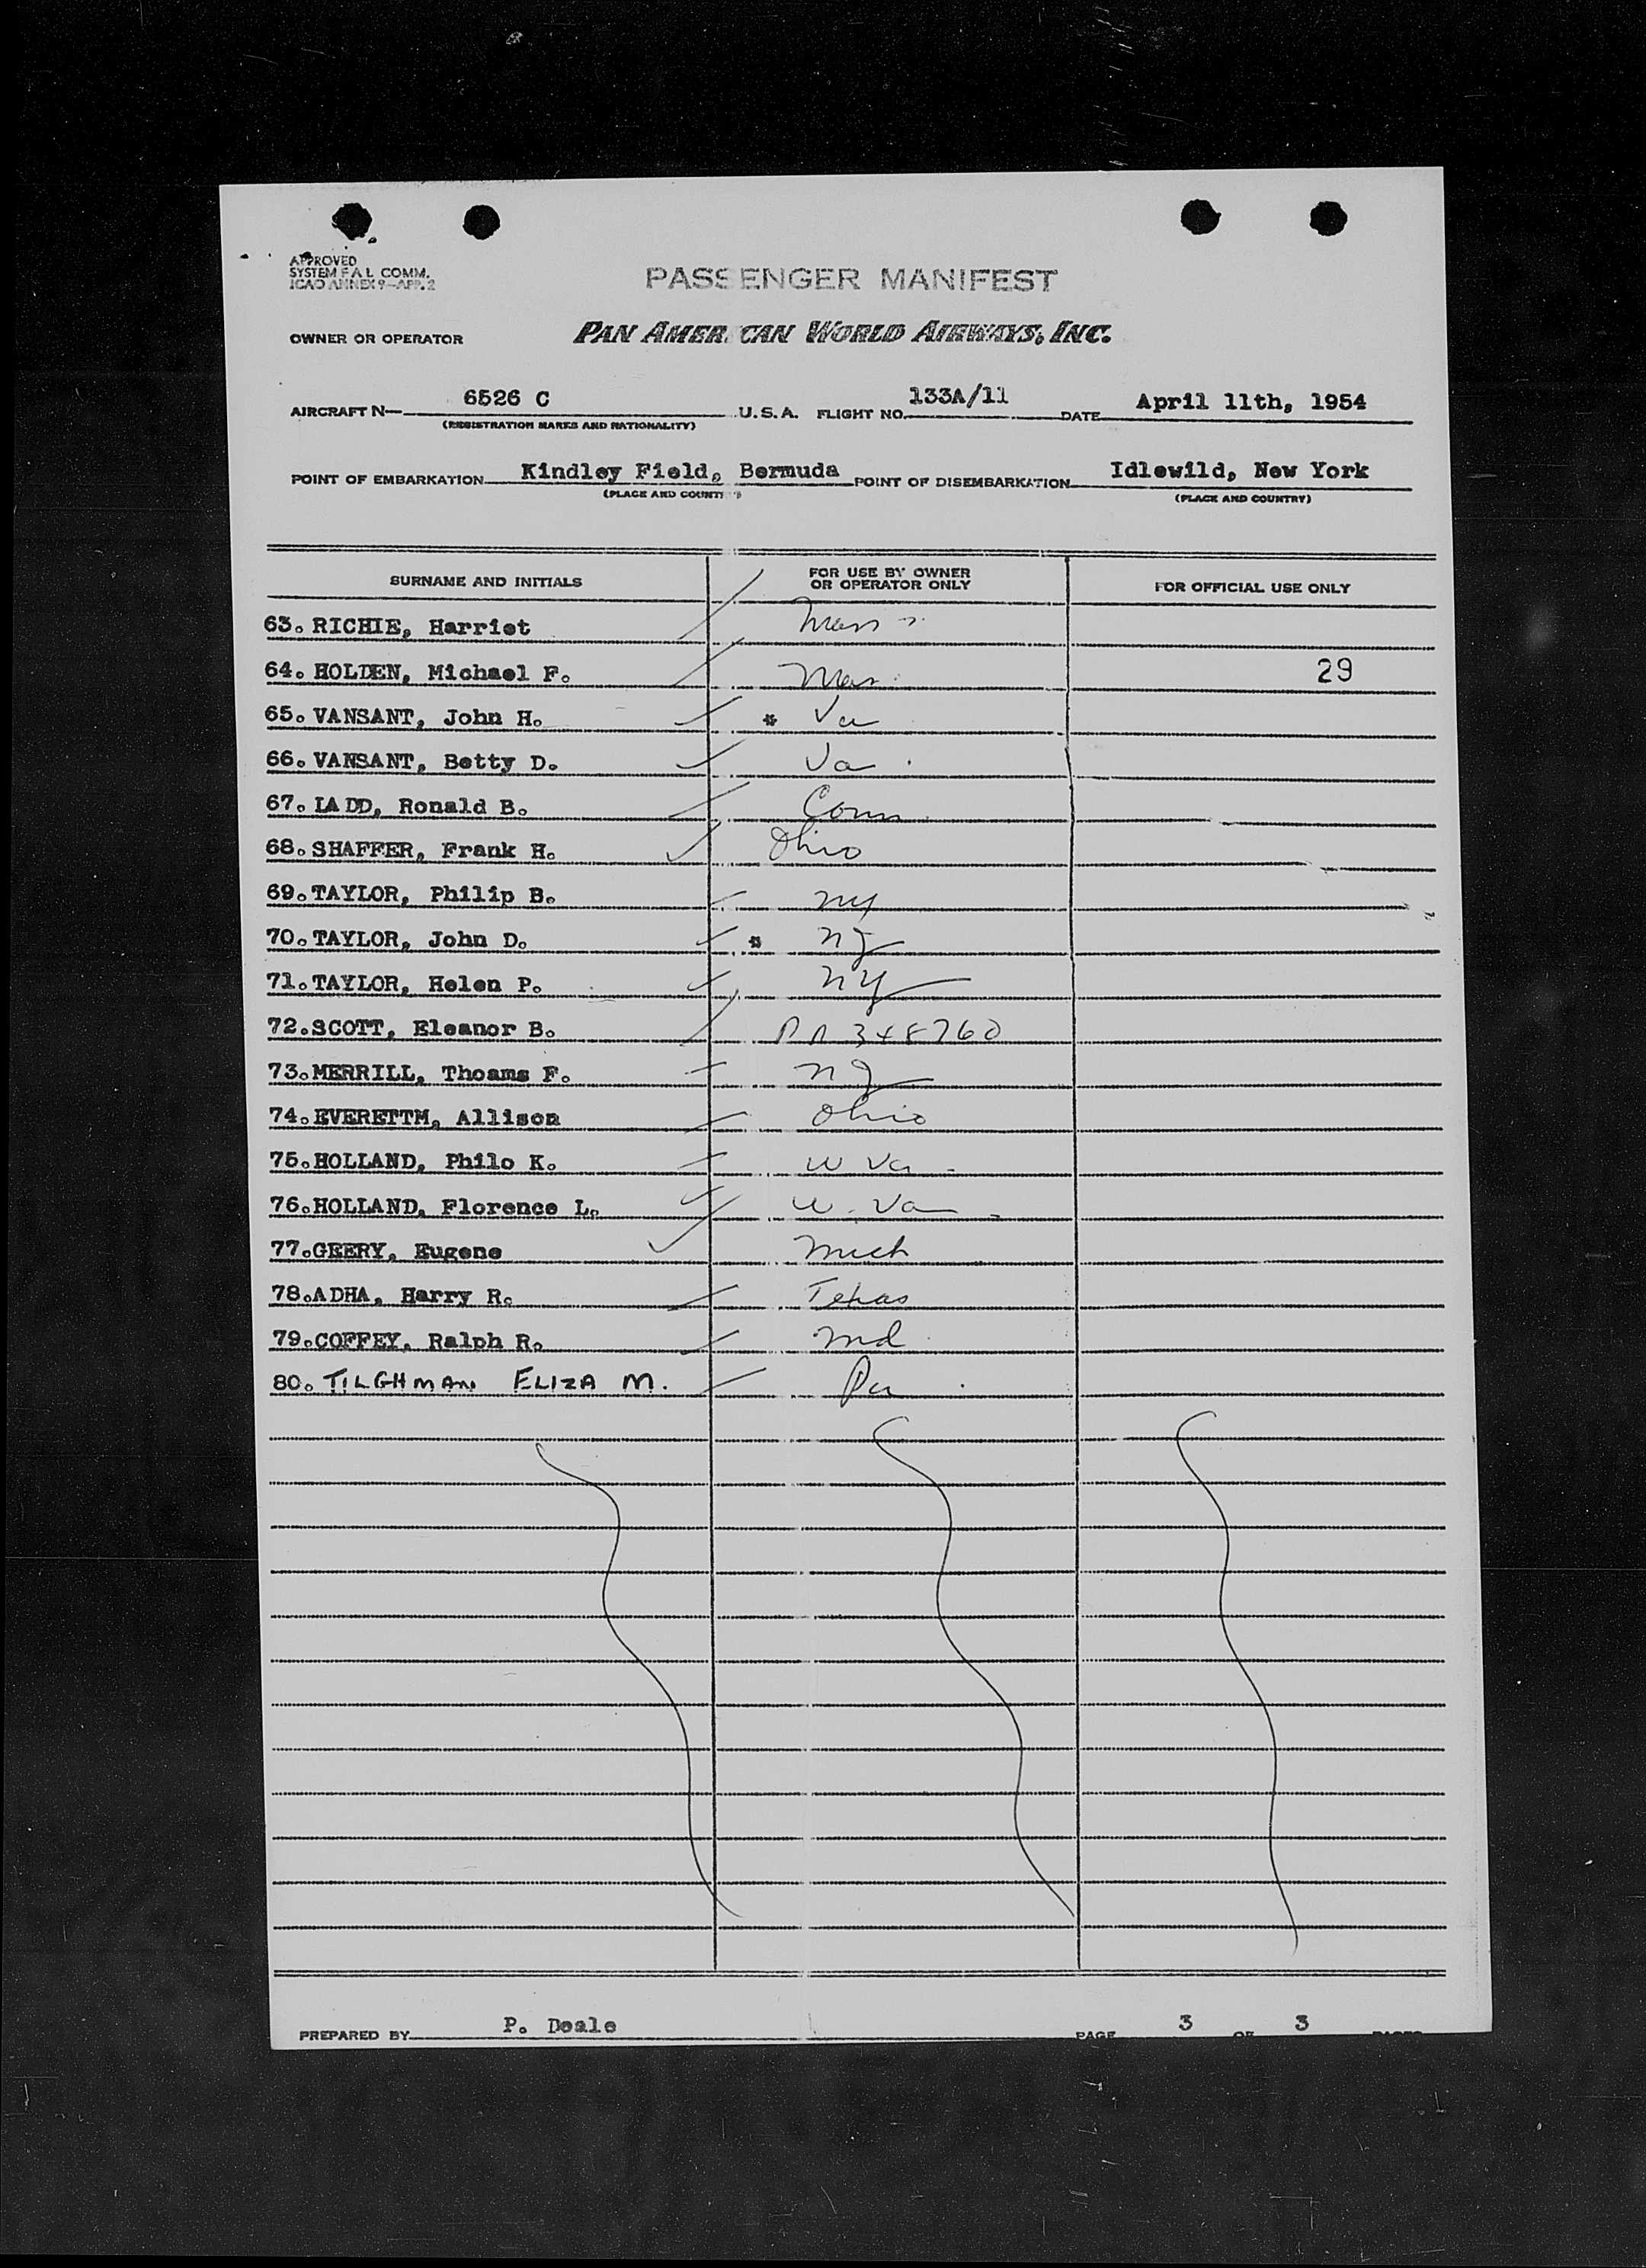 APPROVED
SYSTEM F.A.L. COMM.
ICAO ANNEX 9-APP. 2
PASSENGER MANIFEST
OWNER OR OPERATOR PAN AMERICAN WORLD AIRWAYS, INC.
AIRCRAFT N— 6526 C U.S.A. FLIGHT NO. 133A/11 DATE April 11th, 1954
(REGISTRATION MARKS AND NATIONALITY)
POINT OF EMBARKATION Kindley Field, Bermuda POINT OF DISEMBARKATION Idlewild, New York
(PLACE AND COUNTRY) (PLACE AND COUNTRY)
SURNAME AND INITIALS FOR USE BY OWNER OR OPERATOR ONLY FOR OFFICIAL USE ONLY
63. RICHIE, Harriet Mass
64. HOLDEN, Michael F. Mas. 29
65. VANSANT, John H. * Va
66. VANSANT, Betty D. Va.
67. LADD, Ronald B. Conn.
68. SHAFFER, Frank H. Ohio
69. TAYLOR, Philip B. NY
70. TAYLOR, John D. * NJ
71. TAYLOR, Helen P. NY
72. SCOTT, Eleanor B. 348760
73. MERRILL, Thoams F. NJ
74. EVERETTM, Allison Ohio
75. HOLLAND, Philo K. W Va.
76. HOLLAND, Florence L. W. Va.
77. GEERY, Eugene Mich
78. ADHA, Harry R. Texas
79. COFFEY, Ralph R. Md.
80. TILGHMAN ELIZA M. Pa.
PREPARED BY P. Deale PAGE 3 OF 3 PAGES